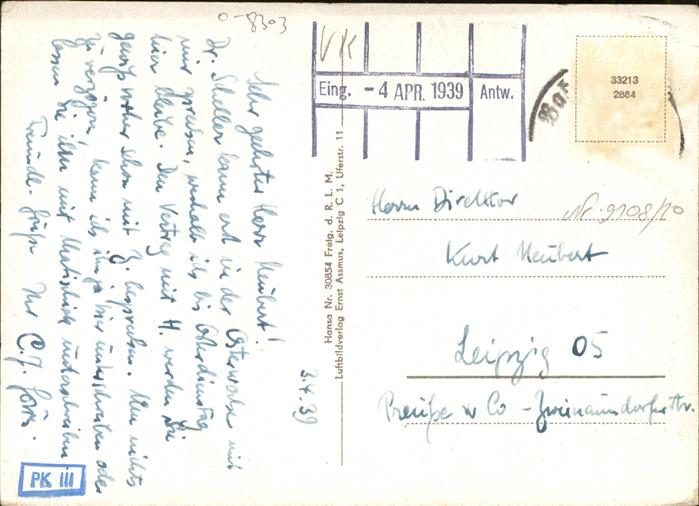 0-8303
VK
Eing. -4 APR. 1939 Antw.
33213
2884
Sehr geehrter Herr Neubert!
Dr. Scheller kann erst in der Osterwoche mit
mir sprechen, weshalb ich bis Osterdienstag
hier bleibe. Den Vertrag mit H. werden Sie
gewiß vorher schon mit Z. besprechen. Um nichts
zu verzögern, kann ich ihn hier unterschreiben oder
lassen Sie ihn mit unterschreiben.
Freundl. Grüße Ihr C. J.
3.4.39
PK III
Hansa Nr. 30854 Freig. d. R. L. M.
Luftbildverlag Ernst Assmus, Leipzig C 1, Uferstr. 11
Herrn Direktor
Nr. 9108/20
Kurt Neubert
Leipzig O5
Preuße & Co - Zweinaundorferstr.